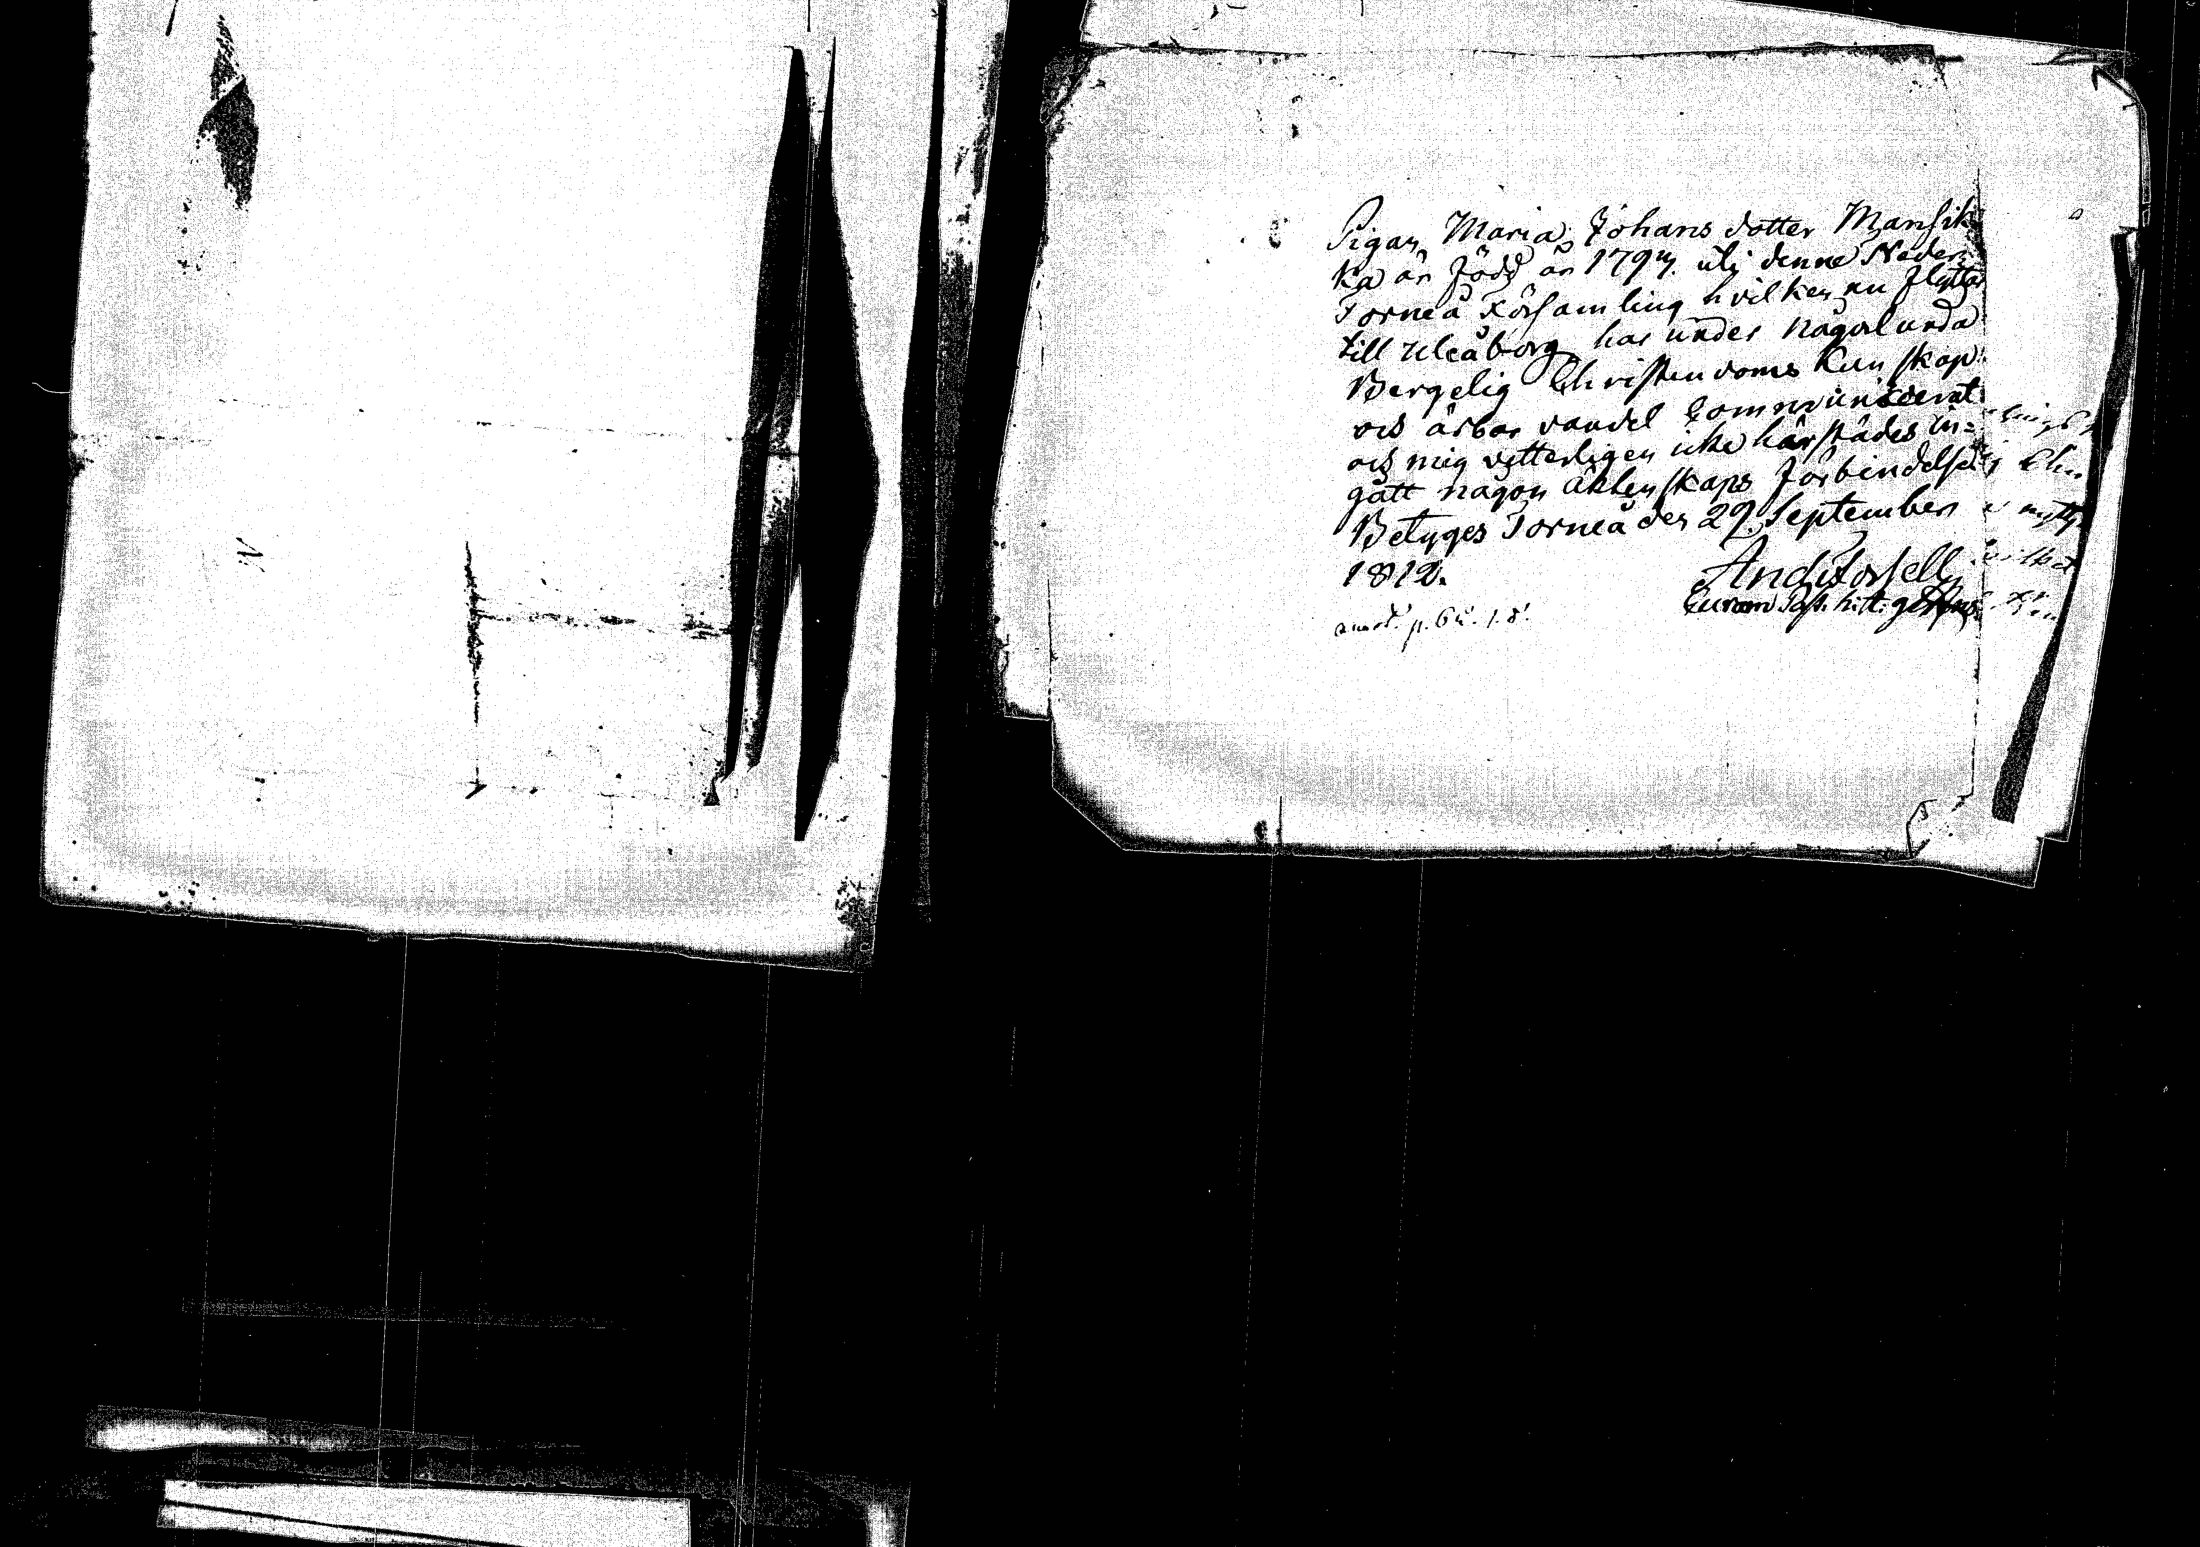 Pigan Maria Johans dotter Mansik
ka är född år 1794. uti denne Neder
Torneå Församling hvilken nu flyttar
till Uleåborg, har under någorlunda
Bergelig Christendoms Kunskap
och ärbar vandel Communicerat
och mig vetterligen icke härstädes in=
gått någon äktenskaps förbindelse
Betyges Torneå den 29. September
1812.
And
amot. p. 62. 1. 8.